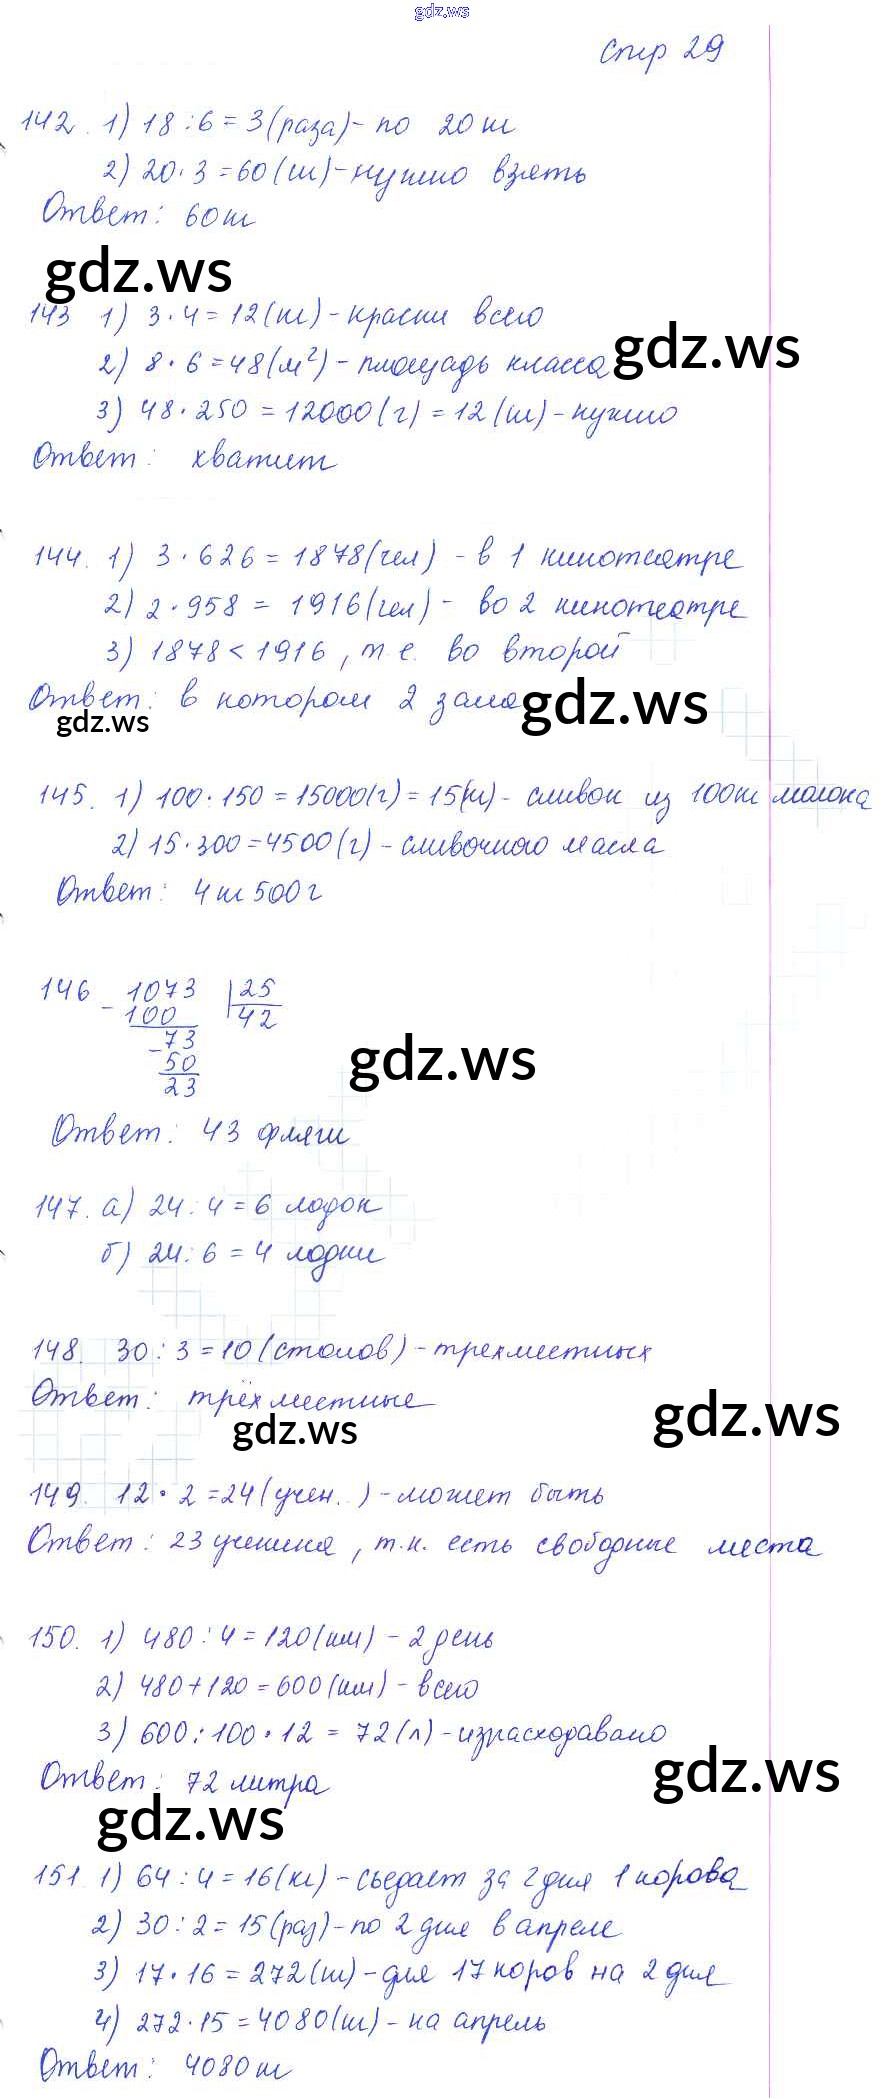 gdz.ws
стр 29
142. 1) 18 : 6 = 3 (раза) - по 20 кг
2) 20 · 3 = 60 (кг) - нужно взять
Ответ: 60 кг
gdz.ws
143 1) 3 · 4 = 12 (кг) - краски всего
2) 8 · 6 = 48 (м²) - площадь класса
gdz.ws
3) 48 · 250 = 12000 (г) = 12 (кг) - нужно
Ответ: хватит
144. 1) 3 · 626 = 1878 (чел) - в 1 кинотеатре
2) 2 · 958 = 1916 (чел) - во 2 кинотеатре
3) 1878 < 1916, т.е. во второй
Ответ: в котором 2 зала
gdz.ws
gdz.ws
145. 1) 100 · 150 = 15000 (г) = 15 (кг) - сливок из 100 кг молока
2) 15 · 300 = 4500 (г) - сливочного масла
Ответ: 4 кг 500 г
146 - 1073 | 25
100 42
- 73
50
23
gdz.ws
Ответ: 43 фляги
147. а) 24 : 4 = 6 лодок
б) 24 : 6 = 4 лодки
148. 30 : 3 = 10 (столов) - трехместных
Ответ: трёхместные
gdz.ws
gdz.ws
149. 12 · 2 = 24 (учен.) - может быть
Ответ: 23 ученика, т.к. есть свободные места
150. 1) 480 : 4 = 120 (км) - 2 день
2) 480 + 120 = 600 (км) - всего
3) 600 : 100 · 12 = 72 (л) - израсходавано
Ответ: 72 литра
gdz.ws
gdz.ws
151. 1) 64 : 4 = 16 (кг) - сьедает за 2 дня 1 корова
2) 30 : 2 = 15 (раз) - по 2 дня в апреле
3) 17 · 16 = 272 (кг) - для 17 коров на 2 дня
4) 272 · 15 = 4080 (кг) - на апрель
Ответ: 4080 кг